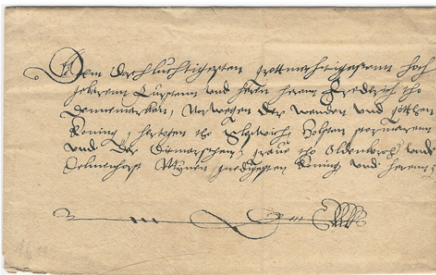 Dem Dorchluchtigesten Grottmechtigestenn Hoch
gebarenn Fursten und Herrn Herrn Frederich tho
Dennemarken, Norwegen der Wenden und Gotthen
Koning, Hertogen tho Schleswich Holsten Stormarenn
und der Ditmarschen, Graue tho Oldenborch unde
Delmenhorst Mynem gnedigesten Koning und Herenn